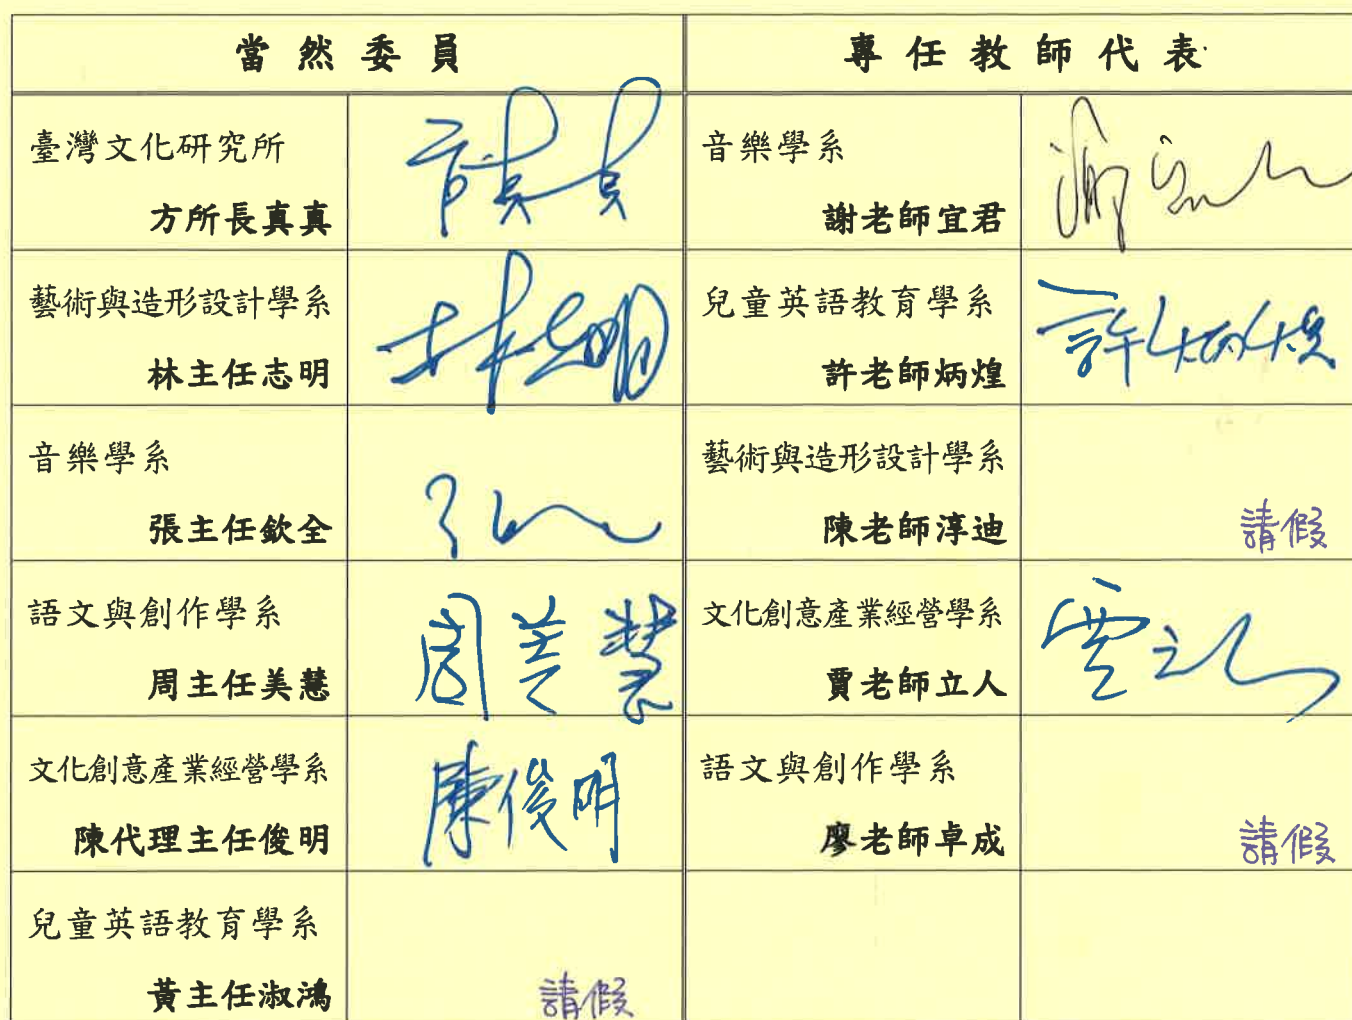 當然委員
專任教師代表
臺灣文化研究所
方所長真真
音樂學系
謝老師宜君
藝術與造形設計學系
林主任志明
林志明
兒童英語教育學系
許老師炳煌
許炳煌
音樂學系
張主任欽全
藝術與造形設計學系
陳老師淳迪
請假
語文與創作學系
周主任美慧
周美慧
文化創意產業經營學系
賈老師立人
文化創意產業經營學系
陳代理主任俊明
陳俊明
語文與創作學系
廖老師卓成
請假
兒童英語教育學系
黃主任淑鴻
請假